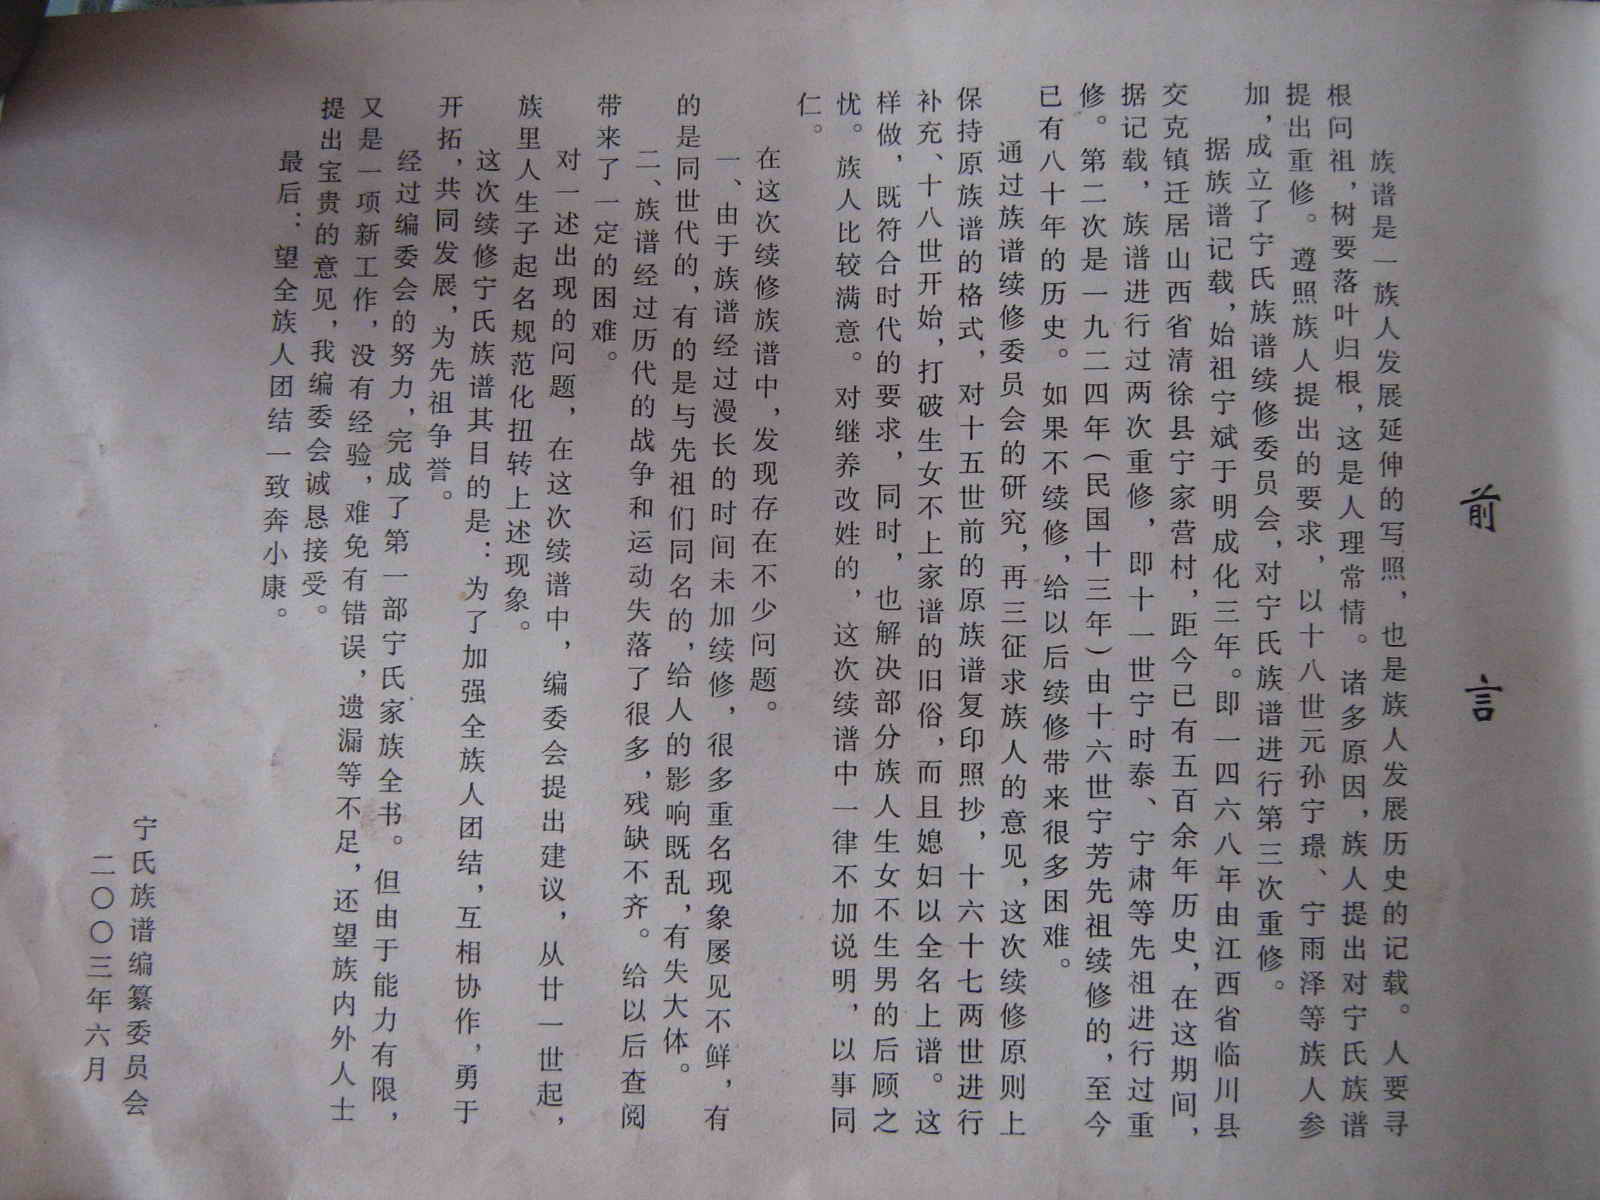 前言
族谱是一族人发展延伸的写照，也是族人发展历史的记载。人要寻
根问祖，树要落叶归根，这是人理常情。诸多原因，族人提出对宁氏族谱
提出重修。遵照族人提出的要求，以十八世元孙宁璟、宁雨泽等族人参
加，成立了宁氏族谱续修委员会，对宁氏族谱进行第三次重修。
据族谱记载，始祖宁斌于明成化三年。即一四六八年由江西省临川县
交克镇迁居山西省清徐县宁家营村，距今已有五百余年历史，在这期间，
据记载，族谱进行过两次重修，即十一世宁时泰、宁肃等先祖进行过重
修。第二次是一九二四年（民国十三年）由十六世宁芳先祖续修的，至今
已有八十年的历史。如果不续修，给以后续修带来很多困难。
通过族谱续修委员会的研究，再三征求族人的意见，这次续修原则上
保持原族谱的格式，对十五世前的原族谱复印照抄，十六十七两世进行
补充、十八世开始，打破生女不上家谱的旧俗，而且媳妇以全名上谱。这
样做，既符合时代的要求，同时，也解决部分族人生女不生男的后顾之
忧。族人比较满意。对继养改姓的，这次续谱中一律不加说明，以事同
仁。
在这次续修族谱中，发现存在不少问题。
一、由于族谱经过漫长的时间未加续修，很多重名现象屡见不鲜，有
的是同世代的，有的是与先祖们同名的，给人的影响既乱，有失大体。
二、族谱经过历代的战争和运动失落了很多，残缺不齐。给以后查阅
带来了一定的困难。
对一述出现的问题，在这次续谱中，编委会提出建议，从廿一世起，
族里人生子起名规范化扭转上述现象。
这次续修宁氏族谱其目的是：为了加强全族人团结，互相协作，勇于
开拓，共同发展，为先祖争誉。
经过编委会的努力，完成了第一部宁氏家族全书。但由于能力有限，
又是一项新工作，没有经验，难免有错误，遗漏等不足，还望族内外人士
提出宝贵的意见，我编委会诚恳接受。
最后：望全族人团结一致奔小康。
宁氏族谱编纂委员会
二〇〇三年六月